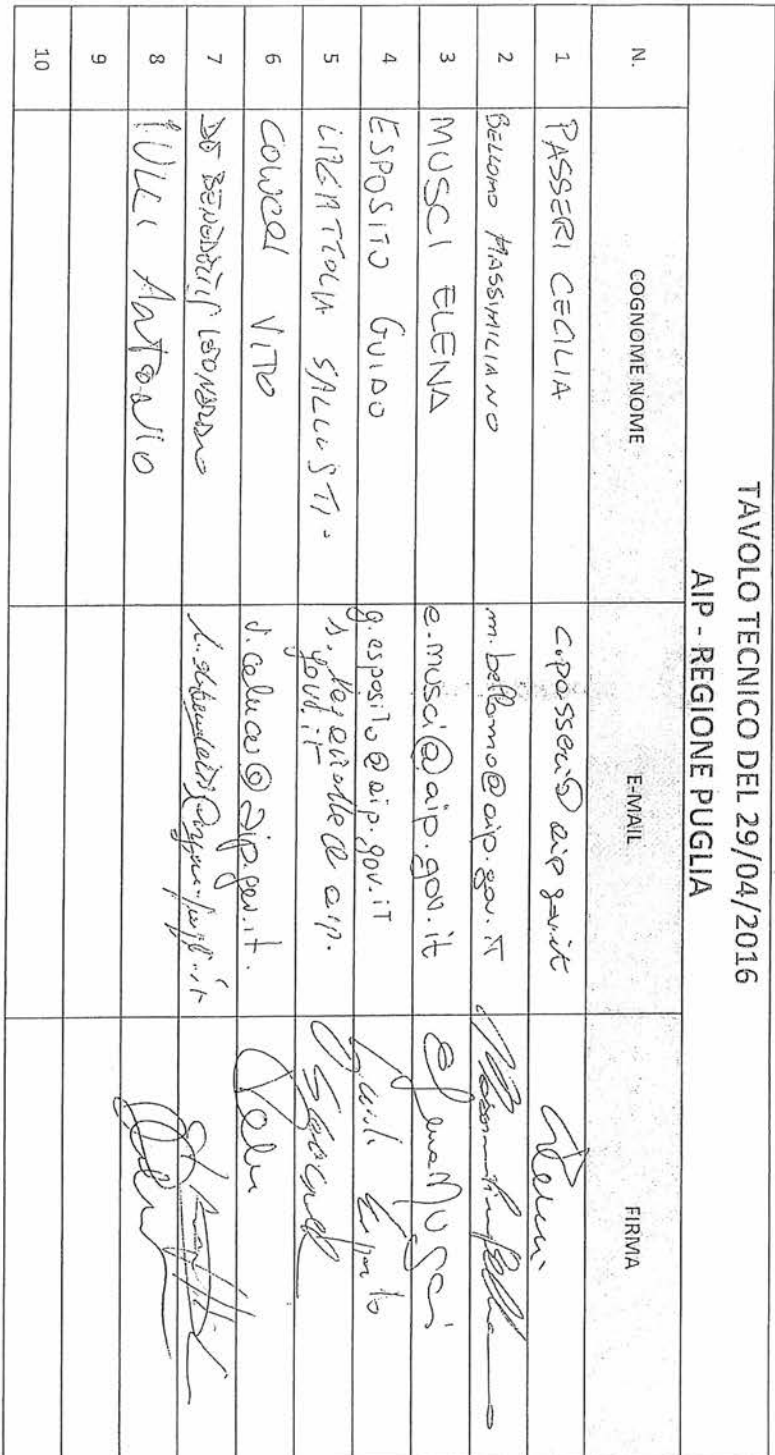 TAVOLO TECNICO DEL 29/04/2016
AIP - REGIONE PUGLIA
N. COGNOME NOME E-MAIL FIRMA
1 PASSERI CECILIA c.passeri@aip.gov.it
2 BELLOMO MASSIMILIANO m.bellomo@aip.gov.it
3 MUSCI ELENA e.musci@aip.gov.it Elena Musci
4 ESPOSITO GUIDO g.esposito@aip.gov.iT Guido Esposito
5 SALLUSTIO aip.
gov.it
6 COLUCCI VITO v.colucci@aip.gov.it.
7 DE BENEDICTIS LEONARDO
8 ANTONIO
9
10